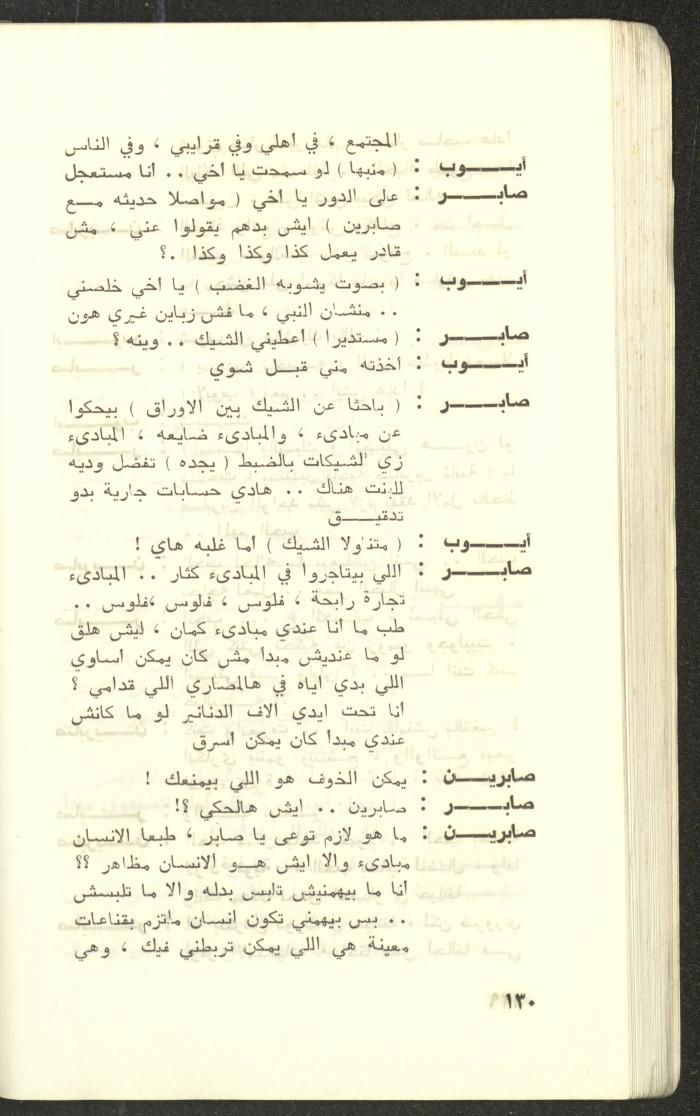 المجتمع ، في اهلي وفي قرايبي ، وفي الناس
أيـــــوب : ( منبها ) لو سمحت يا أخي . . انا مستعجل
صابـــــر : على الدور يا اخي ( مواصلا حديثه مـــع
صابرين ) ايش بدهم يقولوا عني ، مش
قادر يعمل كذا وكذا وكذا .؟
أيـــــوب : ( بصوت يشوبه الغضب ) يا اخي خلصني
. . منشان النبي ، ما فش زباين غيري هون
صابـــــر : ( مستديرا ) أعطيني الشيك . . وينه ؟
أيـــــوب : أخذته مني قبـــل شوي
صابـــــر : ( باحثا عن الشيك بين الاوراق ) بيحكوا
عن مبادىء ، والمبادىء ضايعه ، المبادىء
زي الشيكات بالضبط ( يجده ) تفضل وديه
للبنت هناك . . هادي حسابات جارية بدو
تدقيـــــق
أيـــــوب : ( متناولا الشيك ) أما غلبه هاي !
صابـــــر : اللي بيتاجروا في المبادىء كثار . . المبادىء
تجارة رابحة ، فلوس ، فلوس ،فلوس . .
طب ما أنا عندي مبادىء كمان ، ليش هلق
لو ما عنديش مبدأ مش كان يمكن اساوي
اللي بدي اياه في هالمصاري اللي قدامي ؟
أنا تحت ايدي الاف الدنانير لو ما كانش
عندي مبدأ كان يمكن اسرق
صابريـــن : يمكن الخوف هو اللي بيمنعك !
صابـــــر : صابرين . . ايش هالحكي ؟!
صابريـــن : ما هو لازم توعى يا صابر ، طبعا الانسان
مبادىء والا ايش هـــو الانسان مظاهر ؟؟
أنا ما بيهمنيش تلبس بدله والا ما تلبسش
. . بس بيهمني تكون انسان ملتزم بقناعات
معينة هي اللي يمكن تربطني فيك ، وهي
١٣٠